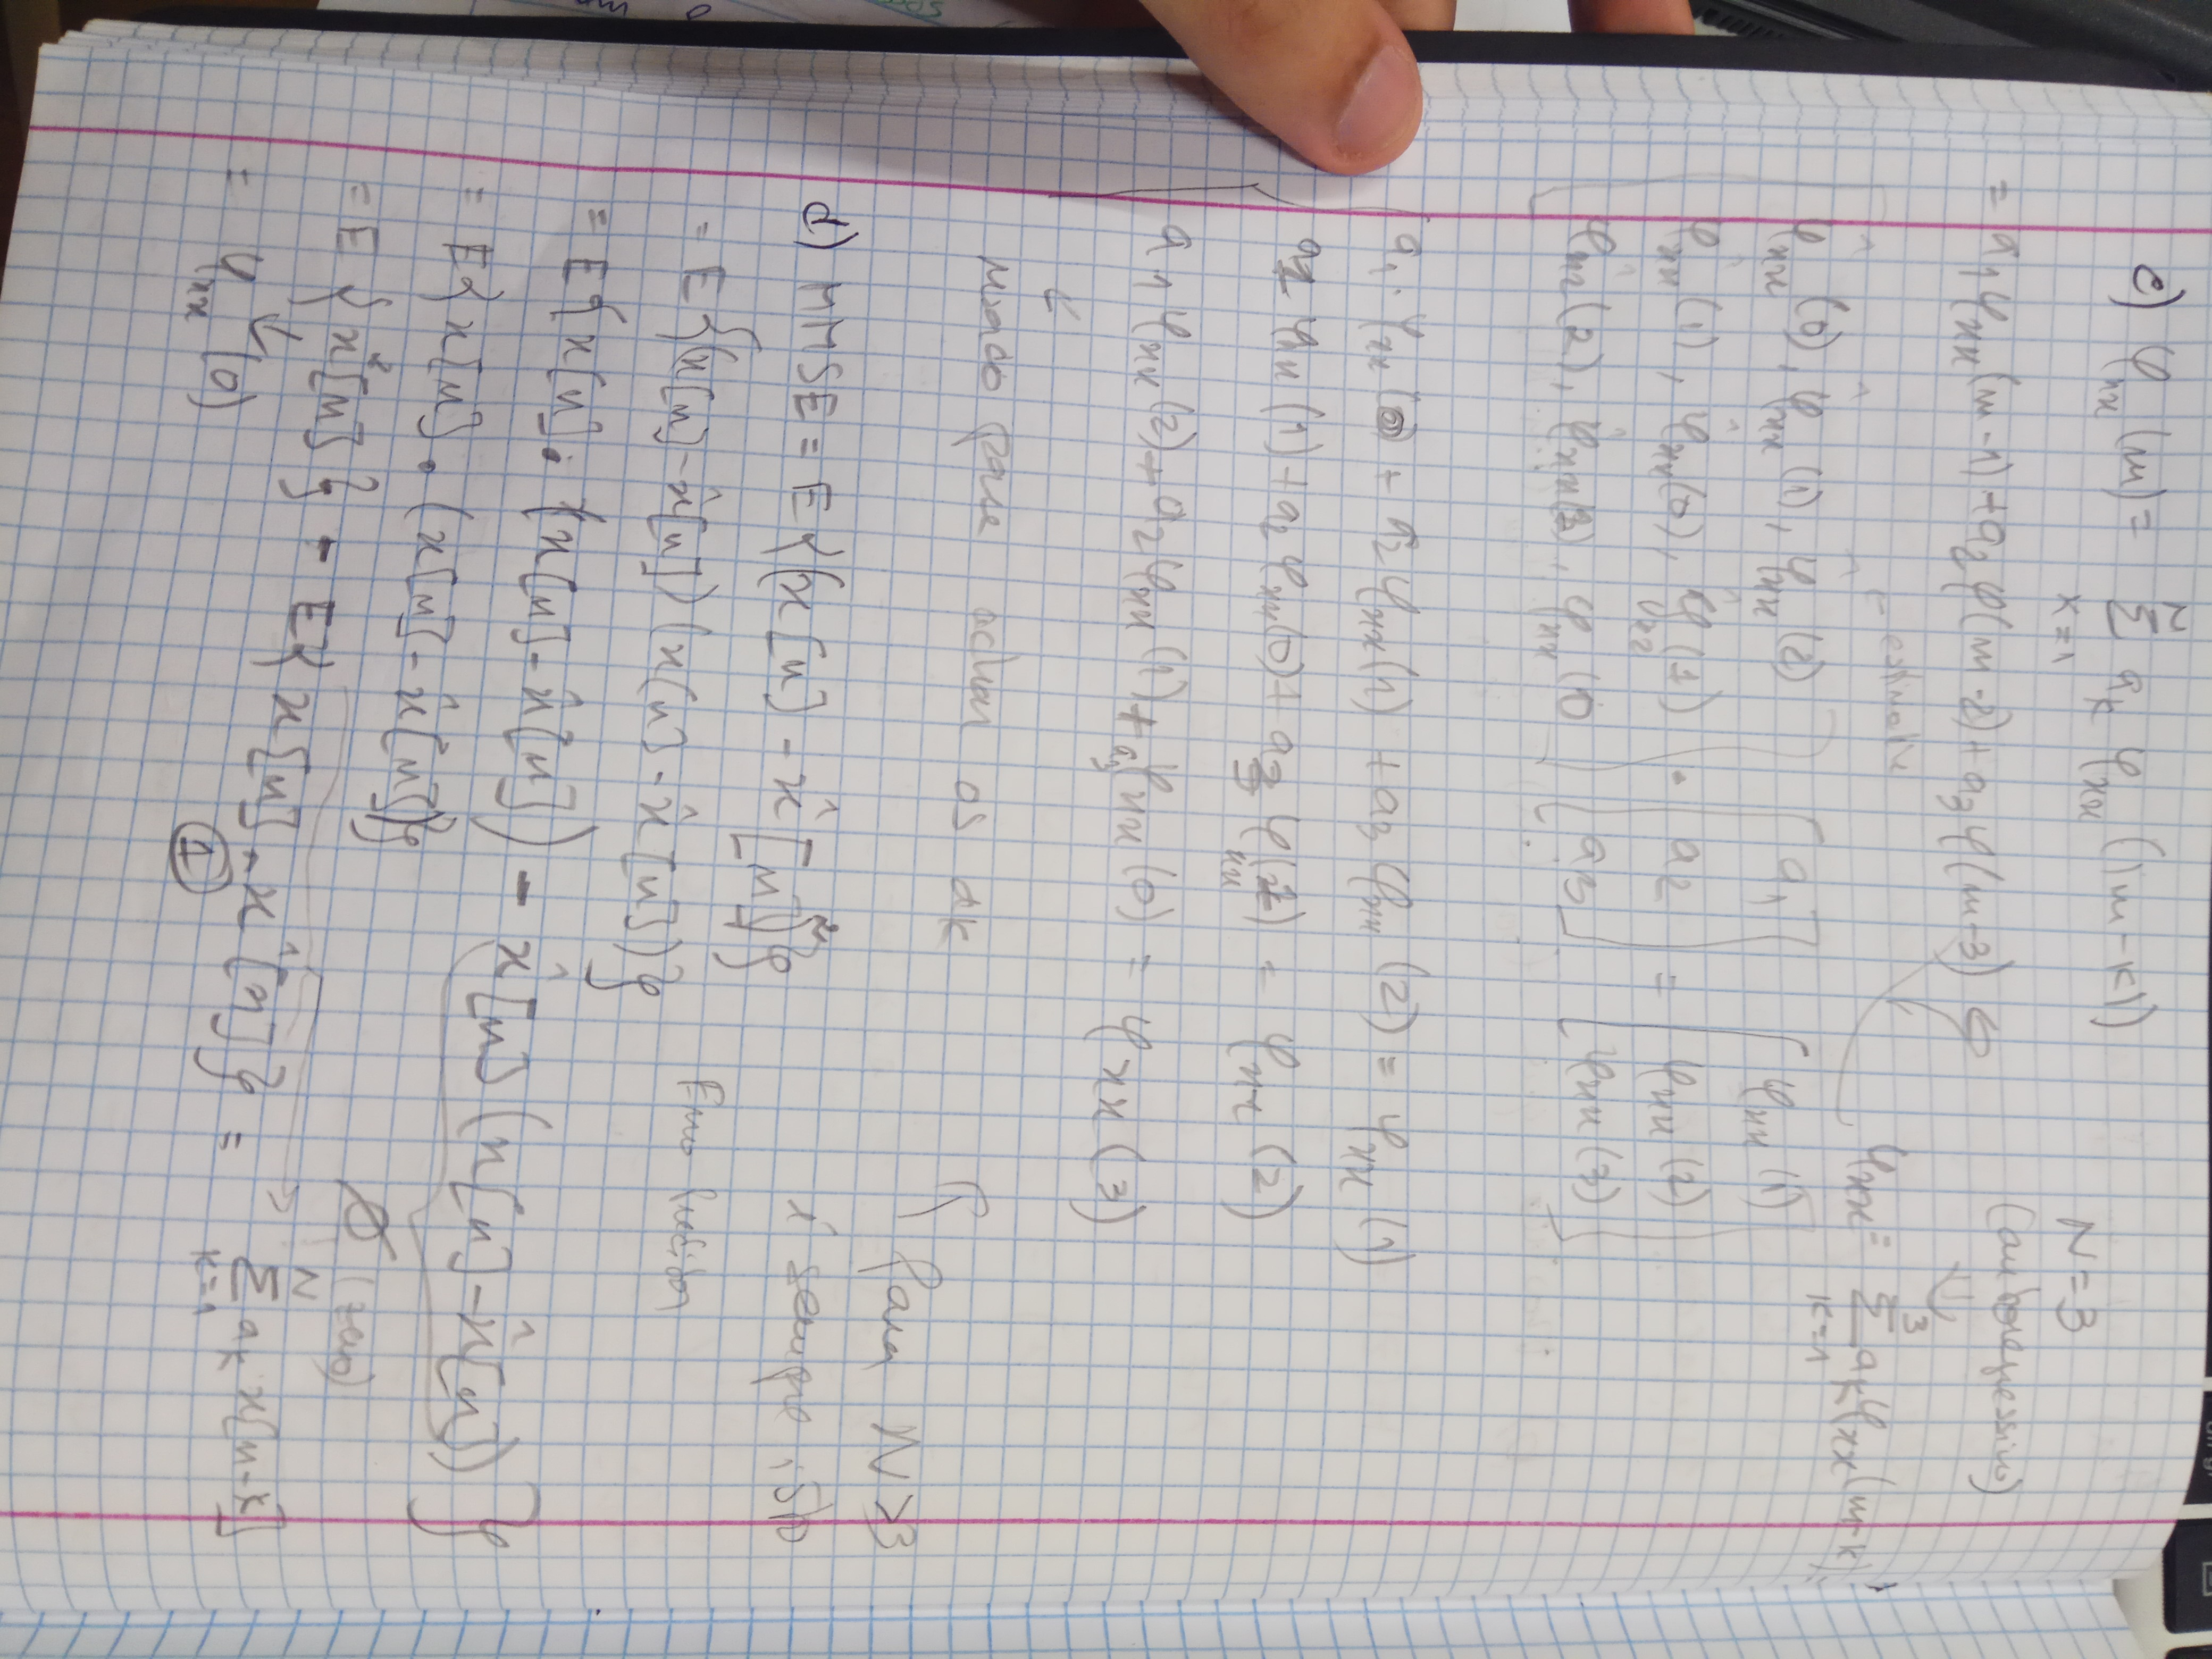 c) φxx(m) = Σ_{k=1}^{N} ak φxx(|m-k|)
N=3
(autoregressivo)
⇓
= a1 φxx(m-1) + a2 φ(m-2) + a3 φ(m-3)
φxx = Σ_{k=1}^{3} ak φxx(m-k)
← estimate
φ̂xx(0), φ̂xx(1), φ̂xx(2) [a1] [φxx(1)]
φ̂xx(1), φ̂xx(0), φ̂xx(1) · [a2] = [φxx(2)]
φ̂xx(2), φ̂xx(1), φxx(0 [a3] [φxx(3)]
a1·φxx(0) + a2 φxx(1) + a3 φxx(2) = φxx(1)
a1 φxx(1) + a2 φxx(0) + a3 φxx(1) = φxx(2)
a1 φxx(2) + a2 φxx(1) + a3 φxx(0) = φxx(3)
↙
usado para achar os ak
Para N>3
é sempre isto
d) MMSE = E{(x[n] - x̂[n])²}
= E{(x[n] - x̂[n]) (x[n] - x̂[n])}
Erro
= E{x[n] · (x[n] - x̂[n]) - x̂[n] (x[n] - x̂[n])}
= E{x[n] · (x[n] - x̂[n])}
∅ (zero)
= E{x²[n]} - E{x[n] · x̂[n]} = Σ_{k=1}^{N} ak x[n-k]
= φxx(0)
①